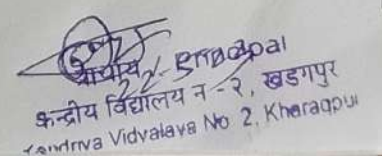 प्राचार्य / Principal
केन्द्रीय विद्यालय न -२, खडगपुर
Kendriya Vidyalaya No 2, Kharagpur